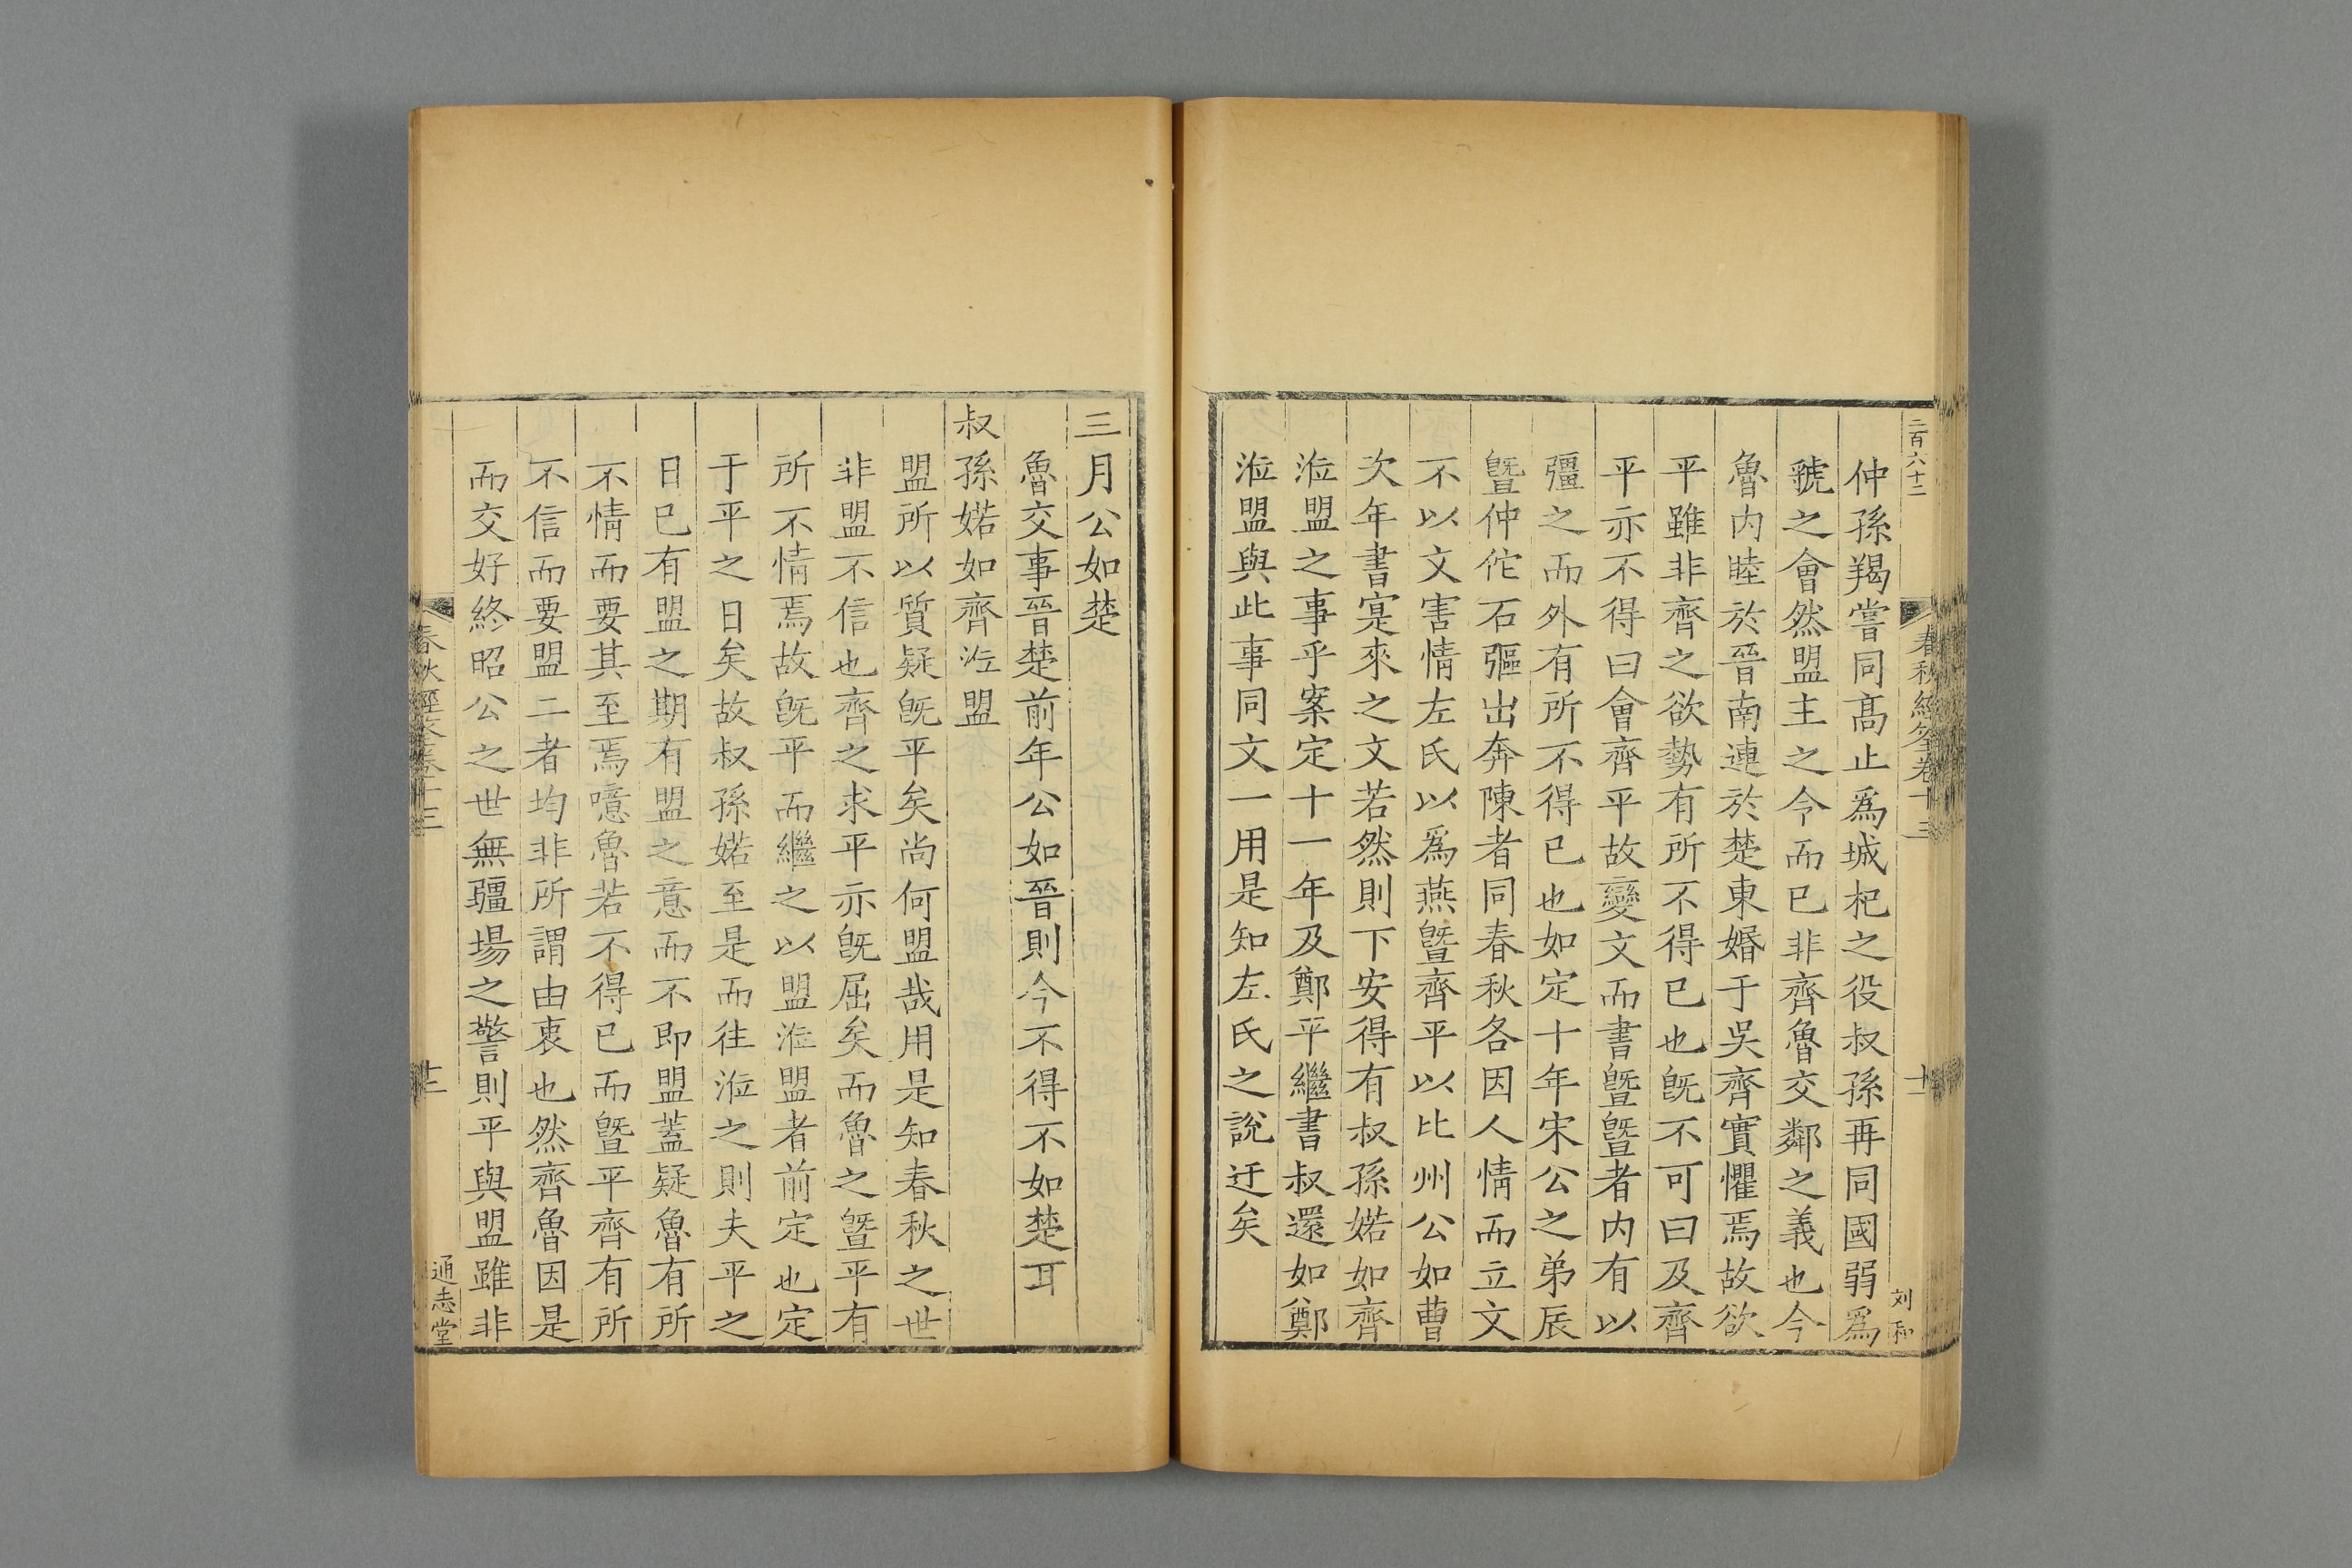 二百六十二
春秋經筌卷十三
十一
刘和
仲孫羯嘗同高止爲城杞之役叔孫再同國弱爲
虢之會然盟主之令而已非齊魯交鄰之義也今
魯内睦於晉南連於楚東婚于吳齊實懼焉故欲
平雖非齊之欲勢有所不得已也旣不可曰及齊
平亦不得曰會齊平故變文而書曁曁者内有以
彊之而外有所不得已也如定十年宋公之弟辰
曁仲佗石彄出奔陳者同春秋各因人情而立文
不以文害情左氏以爲燕曁齊平以比州公如曹
次年書寔來之文若然則下安得有叔孫婼如齊
涖盟之事乎案定十一年及鄭平繼書叔還如鄭
涖盟與此事同文一用是知左氏之說迂矣
三月公如楚
魯交事晉楚前年公如晉則今不得不如楚耳
叔孫婼如齊涖盟
盟所以質疑旣平矣尚何盟哉用是知春秋之世
非盟不信也齊之求平亦旣屈矣而魯之曁平有
所不情焉故旣平而繼之以盟涖盟者前定也定
于平之日矣故叔孫婼至是而往涖之則夫平之
日已有盟之期有盟之意而不即盟蓋疑魯有所
不情而要其至焉噫魯若不得已而曁平齊有所
不信而要盟二者均非所謂由衷也然齊魯因是
而交好終昭公之世無疆場之警則平與盟雖非
春秋經筌卷十三
十二
通志堂